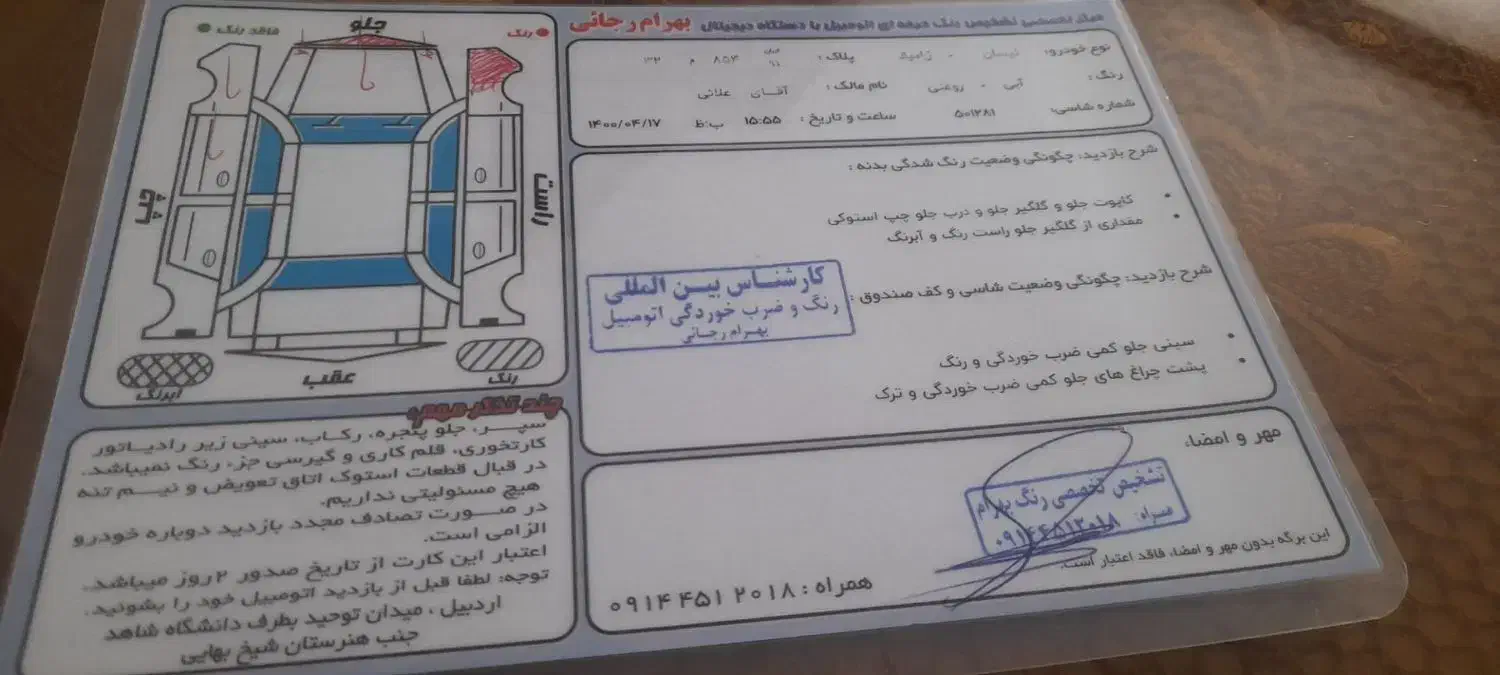 مرکز تخصصی تشخیص رنگ حرفه ای اتومبیل با دستگاه دیجیتال بهرام رجائی
نوع خودرو: نیسان - زامیاد پلاک: ۸۵۴ م ۳۲ ایران ۹۱
رنگ: آبی - روغنی نام مالک: آقای علائی
شماره شاسی: ۵۰۱۲۸۱ ساعت و تاریخ: ۱۵:۵۵ ب:ظ ۱۴۰۰/۰۴/۱۷
شرح بازدید: چگونگی وضعیت رنگ شدگی بدنه:
کاپوت جلو و گلگیر جلو و درب جلو چپ استوکی
مقداری از گلگیر جلو راست رنگ و آبرنگ
شرح بازدید: چگونگی وضعیت شاسی و کف صندوق:
کارشناس بین المللی
رنگ و ضرب خوردگی اتومبیل
بهرام رجائی
سینی جلو کمی ضرب خوردگی و رنگ
پشت چراغ های جلو کمی ضرب خوردگی و ترک
مهر و امضاء
تشخیص تخصصی رنگ بهرام
همراه: ۰۹۱۴۴۵۱۲۰۱۸
این برگه بدون مهر و امضاء، فاقد اعتبار است.
همراه: ۰۹۱۴ ۴۵۱ ۲۰۱۸
رنگ
جلو
فاقد رنگ
راست
چپ
رنگ
عقب
آبرنگ
چند تذکر مهم:
سپر، جلو پنجره، رکاب، سینی زیر رادیاتور
کارتخوری، قلم کاری و گیرسی جزء رنگ نمیباشد.
در قبال قطعات استوک اتاق تعویض و نیم تنه
هیچ مسئولیتی نداریم.
در صورت تصادف مجدد بازدید دوباره خودرو
الزامی است.
اعتبار این کارت از تاریخ صدور ۲ روز میباشد.
توجه: لطفا قبل از بازدید اتومبیل خود را بشوئید.
اردبیل، میدان توحید بطرف دانشگاه شاهد
جنب هنرستان شیخ بهایی